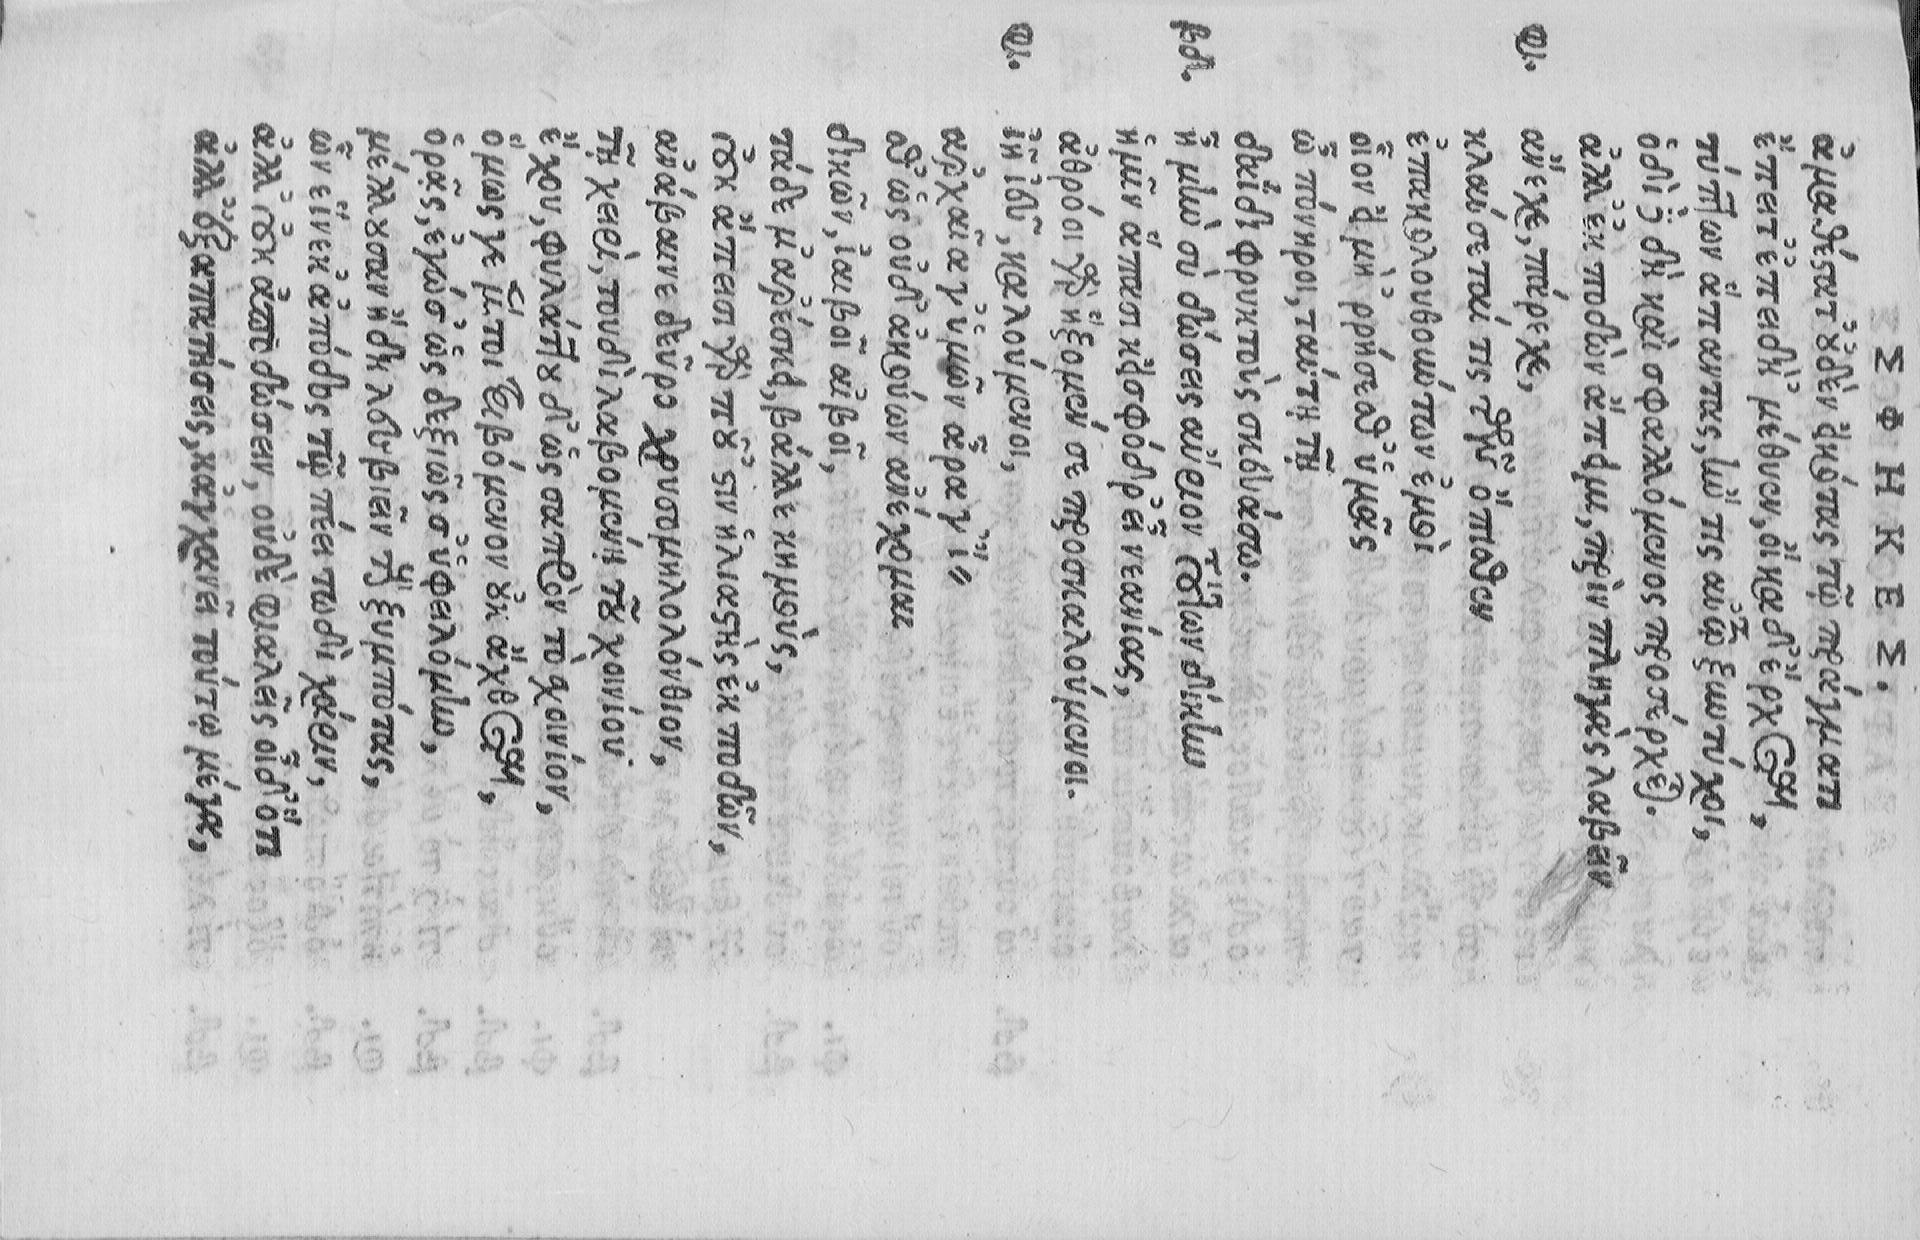 ΣΦΗΚΕΣ.
ἀμαθέστατ' οὐδὲν εἰκότας τῷ πράγματι
ἔπειτ' ἐπειδὴ μέθυεν, οἴκαδ' ἔρχεται,
τύπτων ἅπαντας, ἤν τις αὐτῷ ξυντύχοι,
ὁδὶ δὲ δὴ καὶ σφαλλόμενος προσέρχεται.
ἀλλ' ἐκποδὼν ἄπειμι, πρὶν πληγὰς λαβεῖν
φι. ἄνεχε, πάρεχε,
κλαύσεταί τις τῶν ὄπισθεν
ἐπακολουθούντων ἐμοὶ
οἷον εἰ μὴ ρρήσεσθ' ὑμᾶς
ὦ πόνηροι, ταύτῃ τῇ
δᾳδὶ φρυκτοὺς σκευάσω.
βδ. ἦ μὴν σὺ δώσεις αὔριον τούτων δίκην
ἡμῖν ἅπασι κεἰ σφόδρ' εἶ νεανίας,
ἀθρόοι γὰρ ἥξομέν σε προσκαλούμενοι.
φι. ἰὴ ἰεῦ, καλούμενοι,
ἀρχαῖα γ' ὑμῶν ἆρα γ' ἴσθ'
ὡς οὐδ' ἀκούων ἀνέχομαι
δικῶν, ἰαιβοῖ αἰβοῖ,
τάδε μ' ἀρέσκει, βάλλε κημούς,
οὐκ ἄπεισι γὰρ ποῦ 'στιν ἡλιαστὴς ἐκποδῶν,
ἀνάβαινε δεῦρο χρυσομηλολόνθιον,
τῇ χειρὶ, τουδὶ λαβομένη τοῦ σχοινίου
ἔχου, φυλάττου δ' ὡς σαπρὸν τὸ σχοινίον,
ὅμως γε μέν τοι τριβόμενον οὐκ ἄχθεται,
ὁρᾷς, ἐγώ σ' ὡς δεξιῶς ὑφειλόμην,
μέλλουσαν ἤδη λεσβιεῖν τοὺς ξυμπότας,
ὧν εἵνεκ' ἀπόδος τῷ πέει τῳδὶ χάριν,
ἀλλ' οὐκ ἀποδώσεις, οὐδὲ φιαλεῖς οἶδ' ὅτι
ἀλλ' ἐξαπατήσεις, κἀγχανεῖ τούτῳ μέγα,